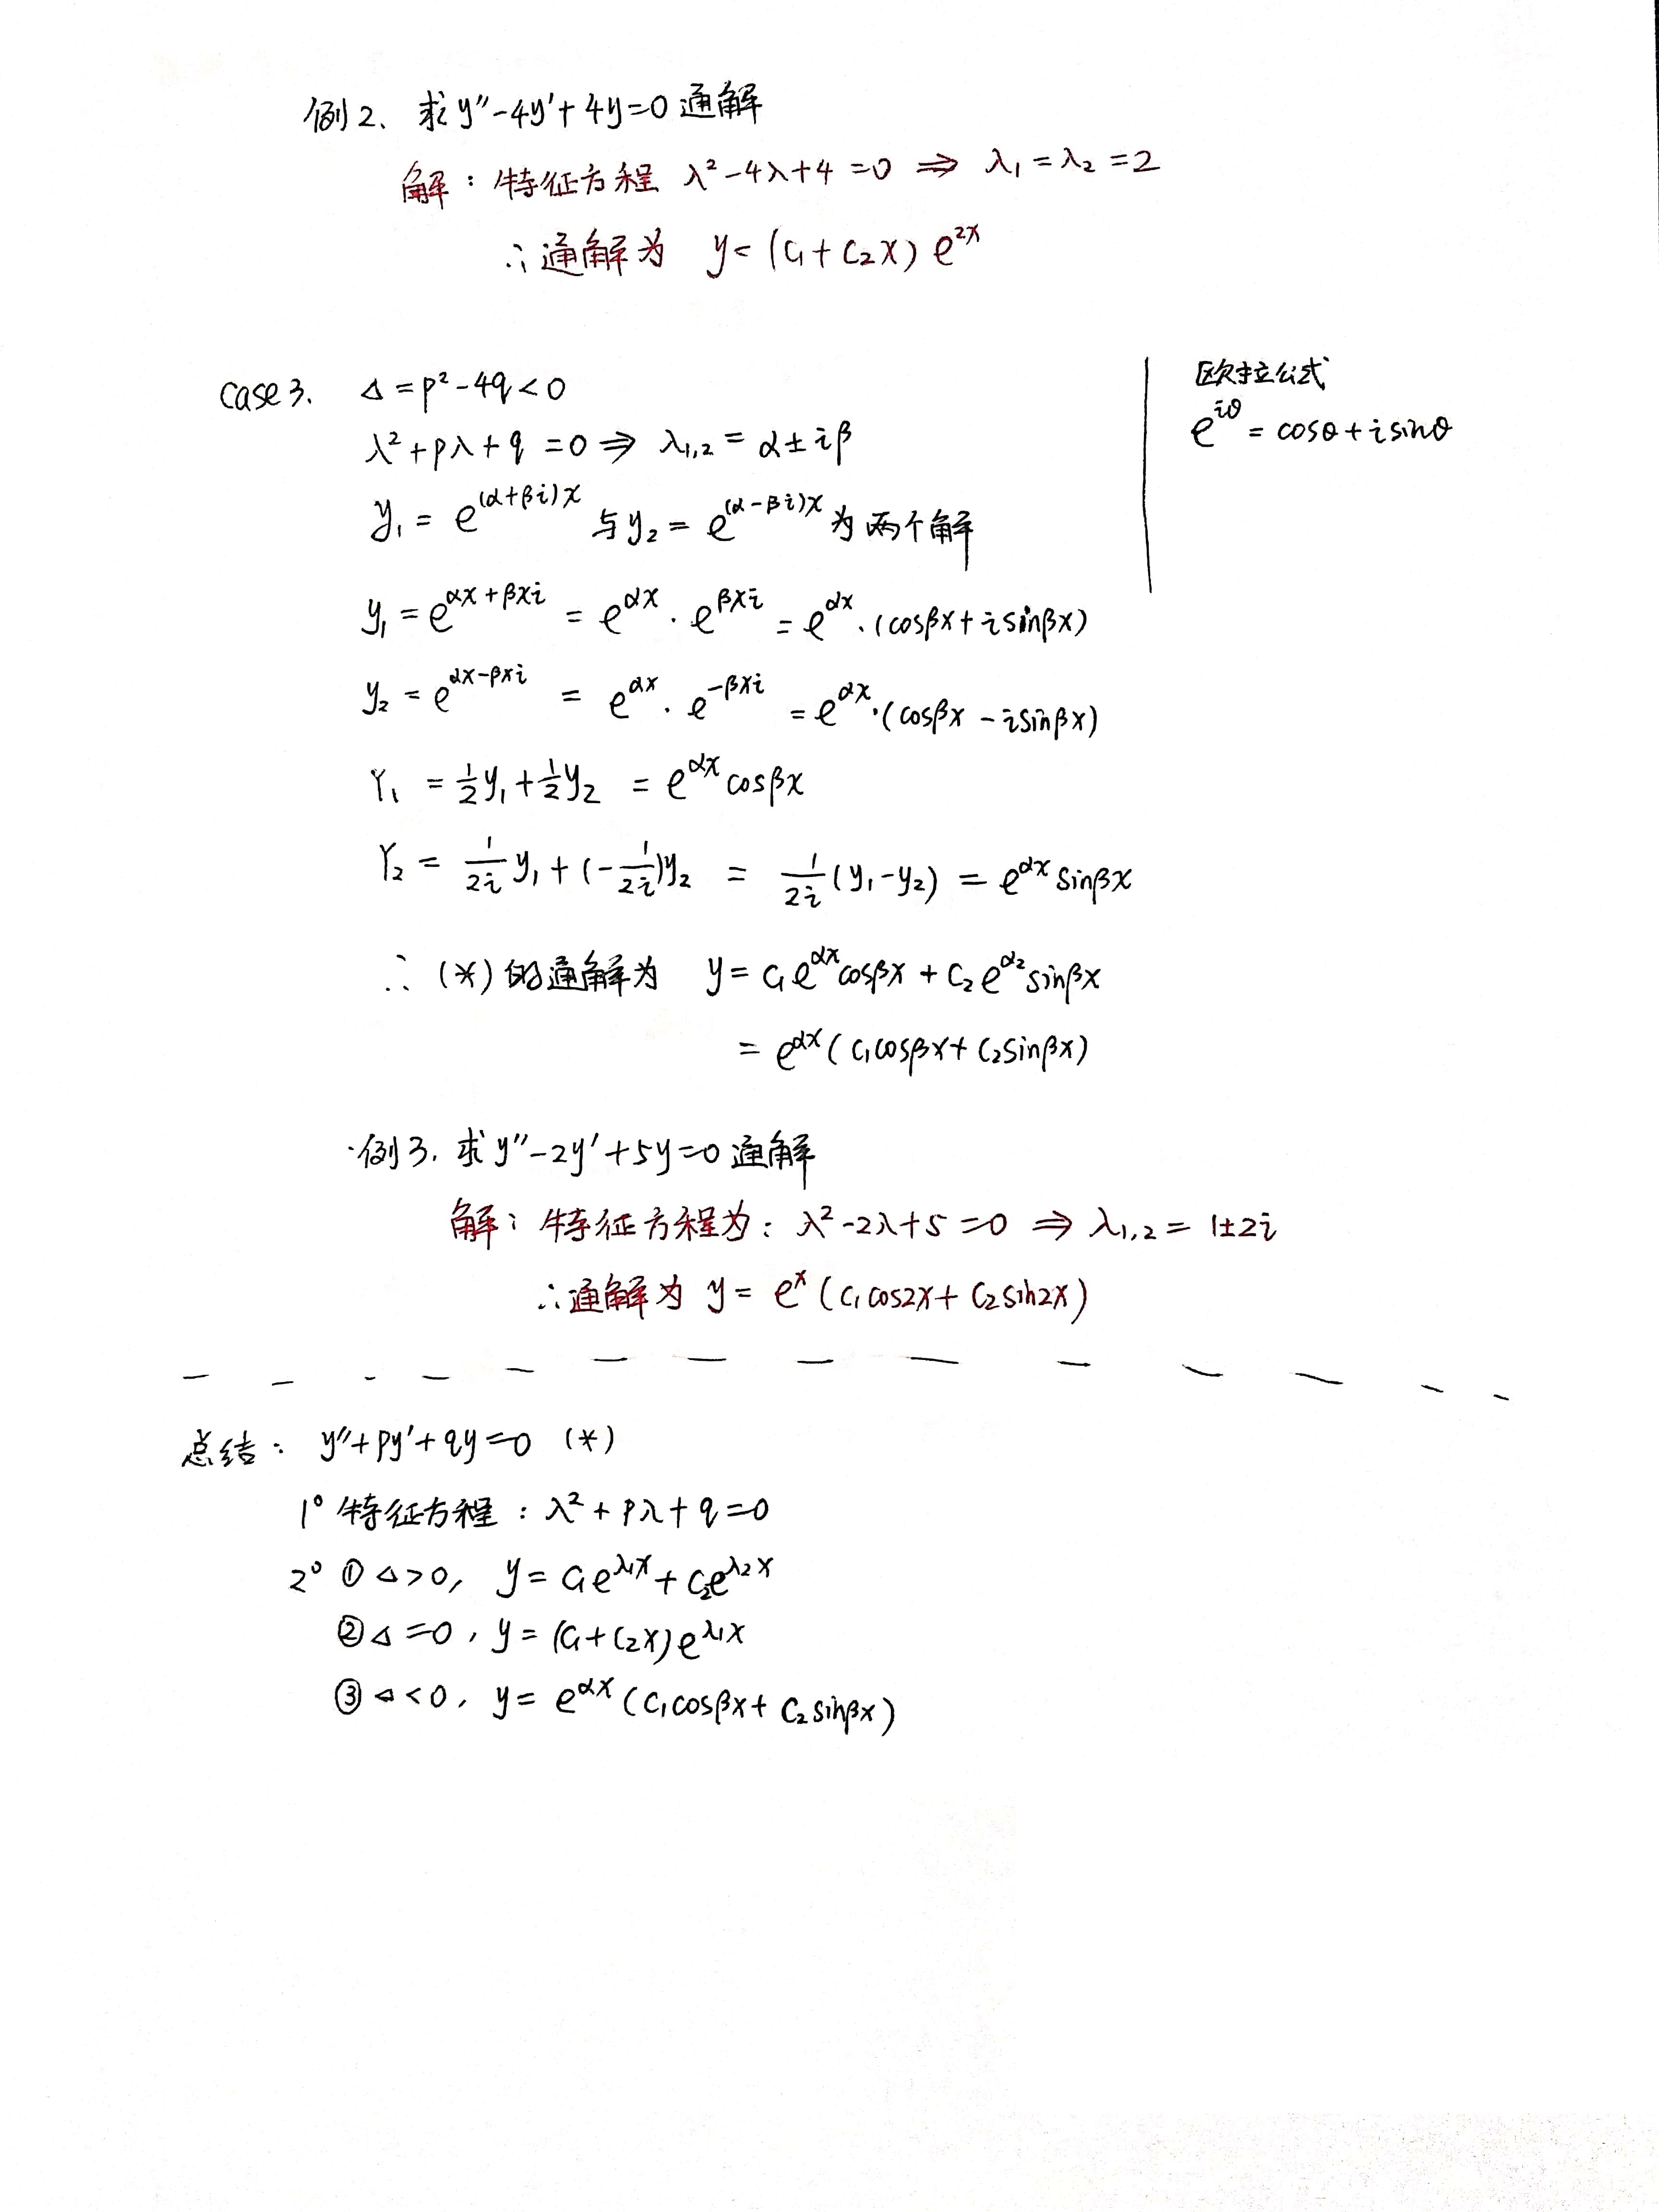 例2、求 y″-4y′+4y=0 通解
解：特征方程 λ²-4λ+4=0 ⇒ λ₁=λ₂=2
∴通解为 y=(C₁+C₂x)e^{2x}
case 3. Δ=p²-4q<0
λ²+pλ+q=0 ⇒ λ₁,₂=α±iβ
y₁=e^{(α+βi)x} 与 y₂=e^{(α-βi)x} 为两个解
欧拉公式
e^{iθ}=cosθ+isinθ
y₁=e^{αx+βxi}=e^{αx}·e^{βxi}=e^{αx}·(cosβx+isinβx)
y₂=e^{αx-βxi}=e^{αx}·e^{-βxi}=e^{αx}·(cosβx-isinβx)
Y₁=½y₁+½y₂=e^{αx}cosβx
Y₂=\frac{1}{2i}y₁+(-\frac{1}{2i})y₂=\frac{1}{2i}(y₁-y₂)=e^{αx}sinβx
∴(*)的通解为 y=C₁e^{αx}cosβx+C₂e^{α2}sinβx
=e^{αx}(C₁cosβx+C₂sinβx)
·例3. 求 y″-2y′+5y=0 通解
解：特征方程为：λ²-2λ+5=0 ⇒ λ₁,₂=1±2i
∴通解为 y=e^{x}(C₁cos2x+C₂sin2x)
总结：y″+py′+qy=0 (*)
1° 特征方程：λ²+pλ+q=0
2° ①Δ>0, y=C₁e^{λ₁x}+C₂e^{λ₂x}
②Δ=0, y=(C₁+C₂x)e^{λ₁x}
③Δ<0, y=e^{αx}(C₁cosβx+C₂sinβx)